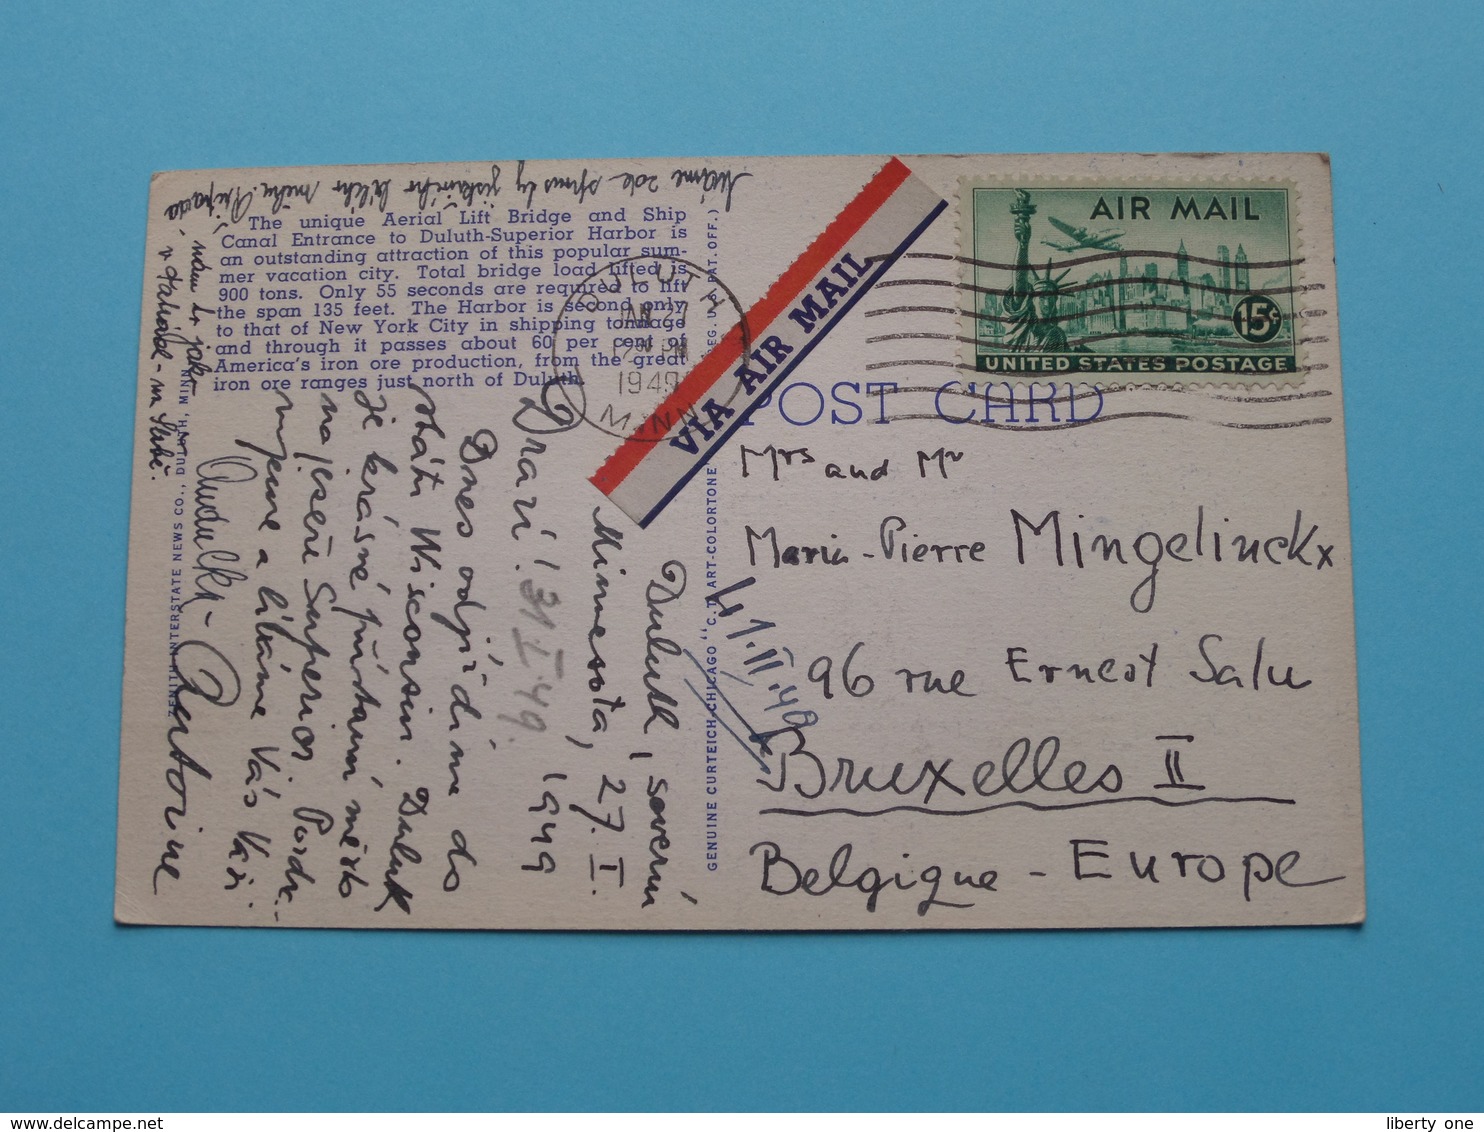 The unique Aerial Lift Bridge and Ship
Canal Entrance to Duluth-Superior Harbor is
an outstanding attraction of this popular sum-
mer vacation city. Total bridge load lifted is
900 tons. Only 55 seconds are required to lift
the span 135 feet. The Harbor is second only
to that of New York City in shipping tonnage
and through it passes about 60 per cent of
America's iron ore production, from the great
iron ore ranges just north of Duluth.
ZENITH INTERSTATE NEWS CO., DULUTH, MINN.
Duluth, severní
Minnesota, 27. I. 1949
Drazí!
31 I 49.
Dnes odjíždíme do
státu Wisconsin. Duluth
je krásné přístavní město
na jezeře Superior. Pozdra-
vujeme a líbáme Vás Vaši
GENUINE CURTEICH-CHICAGO "C.T. ART-COLORTONE
REG. U.S. PAT. OFF.)
DULUTH
JAN 27
PM
1949
MINN.
VIA AIR MAIL
AIR MAIL
15¢
UNITED STATES POSTAGE
POST CARD
Mrs and Mr
Maria-Pierre Mingelinckx
1.II.49
96 rue Ernest Salu
Bruxelles II
Belgique - Europe
liberty one